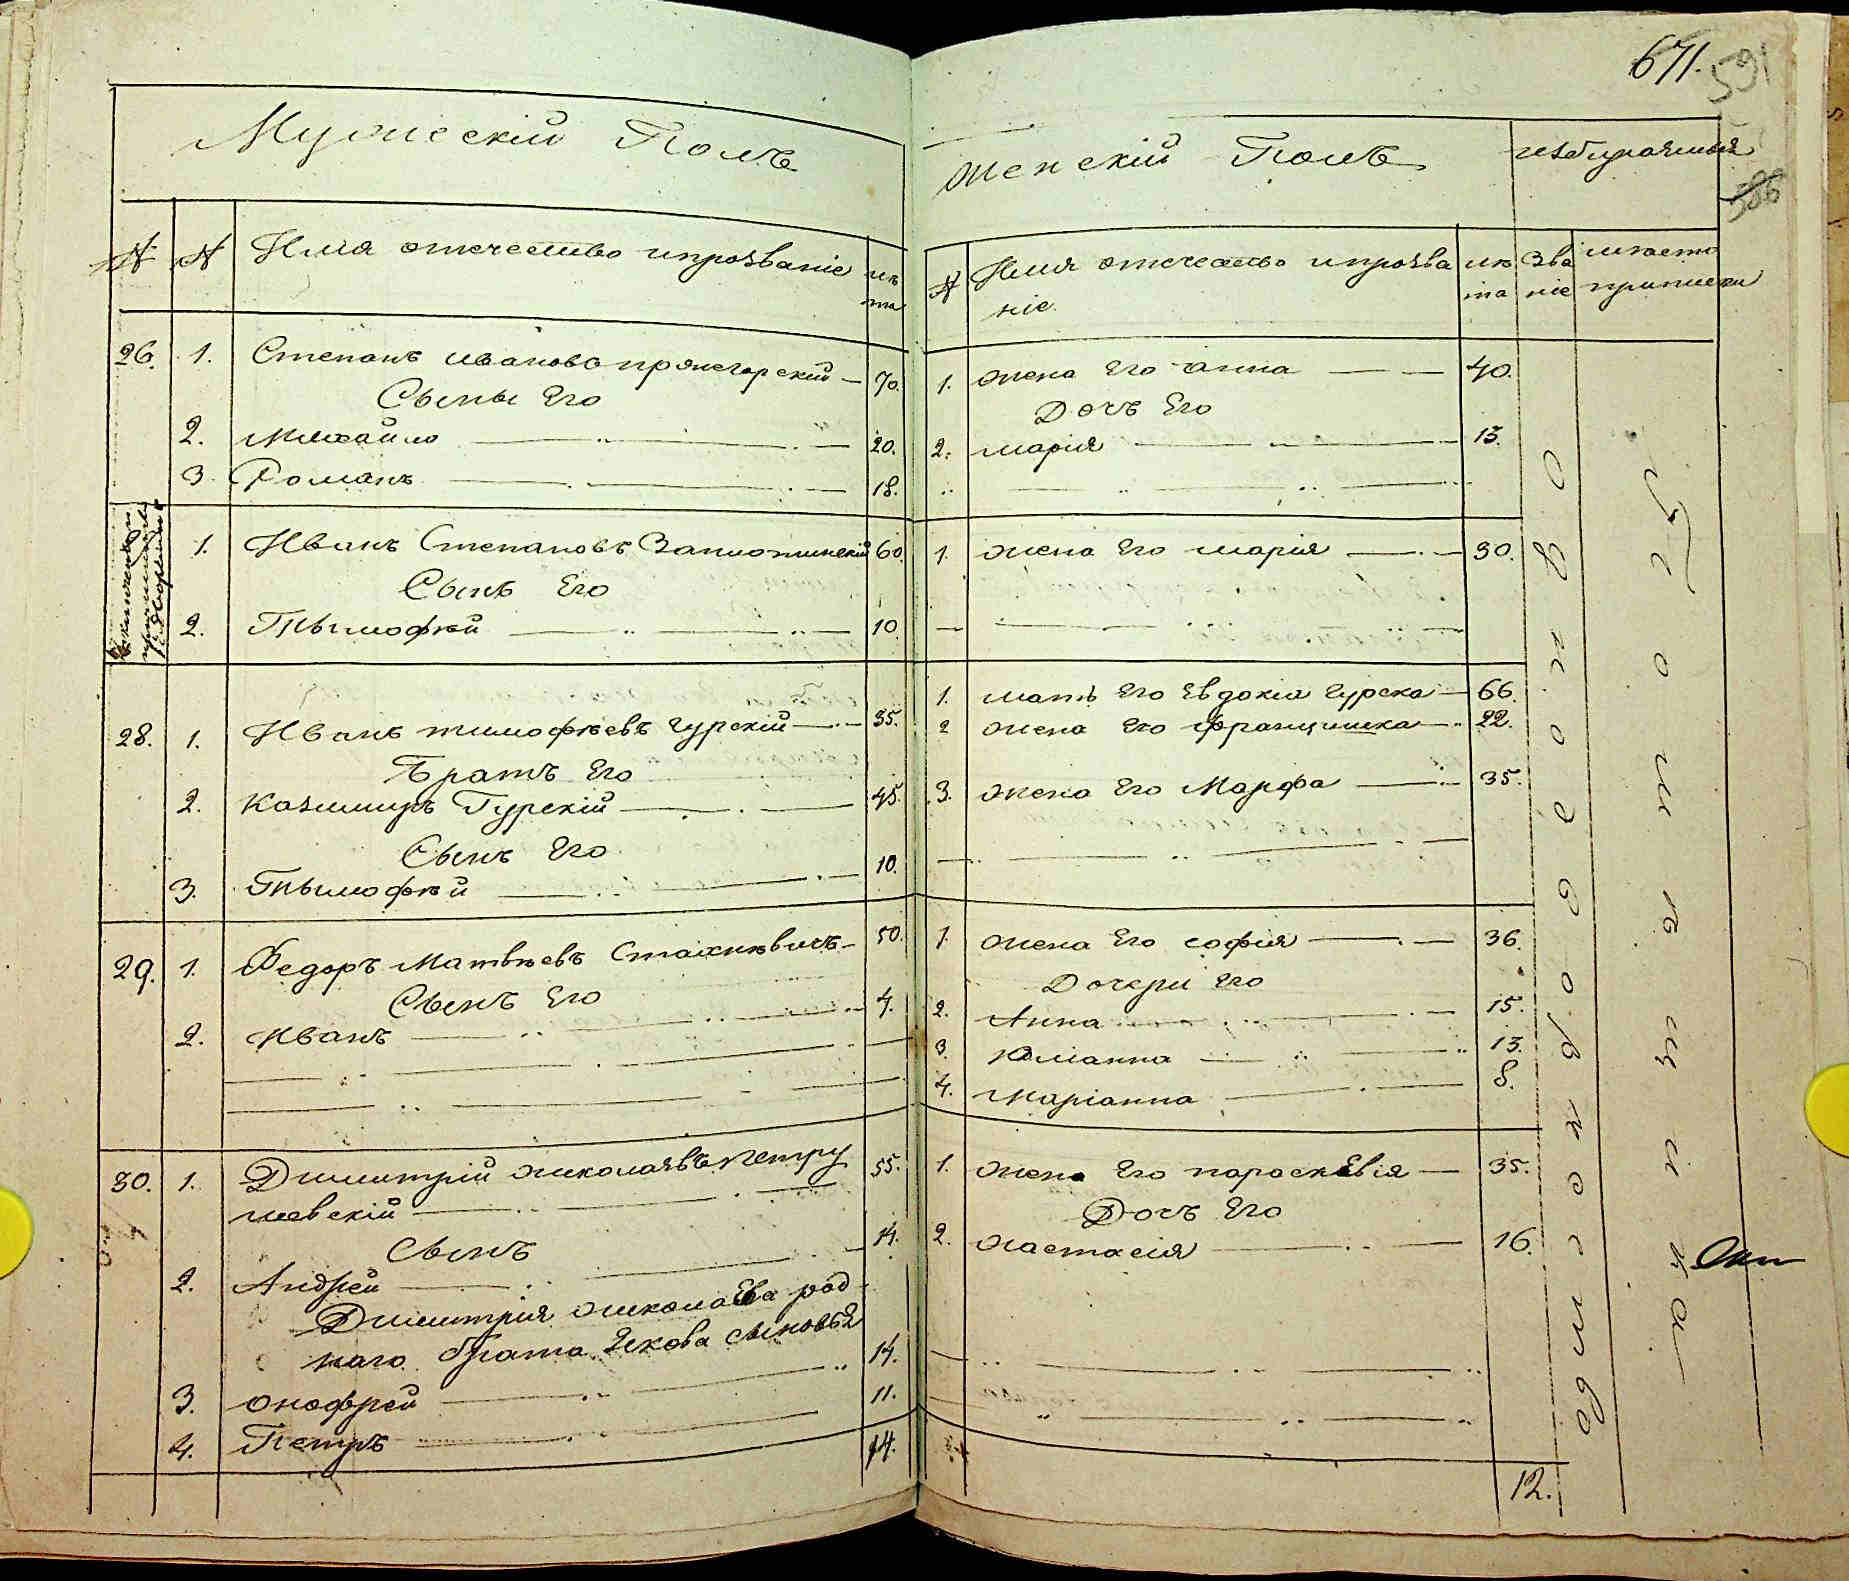 671.
591
586
Мужескій Полъ
№ № Имя отечество ипрозваніе лѣ
та
26. 1. Степанъ Иванова пряжегорскій 70.
Сыны Его
2. Михайло 20.
3. Романъ 18.
1. Иванъ Степановъ 60.
Сынъ Его
2. Тымофѣй 10.
28. 1. Иванъ тимофѣевъ гурскій 35.
Братъ Его
2. Казимиръ Гурскій 45.
Сынъ Его
3. Тымофѣй 10.
29. 1. Федоръ Матвѣевъ 50.
Сынъ Его
2. Иванъ 4.
30. 1. Димитрій николаявъ петру 55.
шевскій
Сынъ
2. Андрей 14.
Димитрія николаева род
наго брата Якова сыновья
3. онофрей 14.
4. Петръ 11.
14.
женскій Полъ
№ Имя отечество ипрозва лѣ Зва мѣсто
ніе та ніе приписки
1. жена Его анна 40.
Дочь Его
2. мария 13.
1. жена Его марія 30.
1. мать Его Евдокія гурска 66.
2 жена Его францишка 22.
3. жена Его Марфа 35.
1. жена Его софия 36.
Дочери Его
2. Анна 15.
3. Юліанна 13.
4. маріанна 8.
1. жена Его параскевія 35.
Дочь Его
2. настасія 16.
12.
Однодворческаго